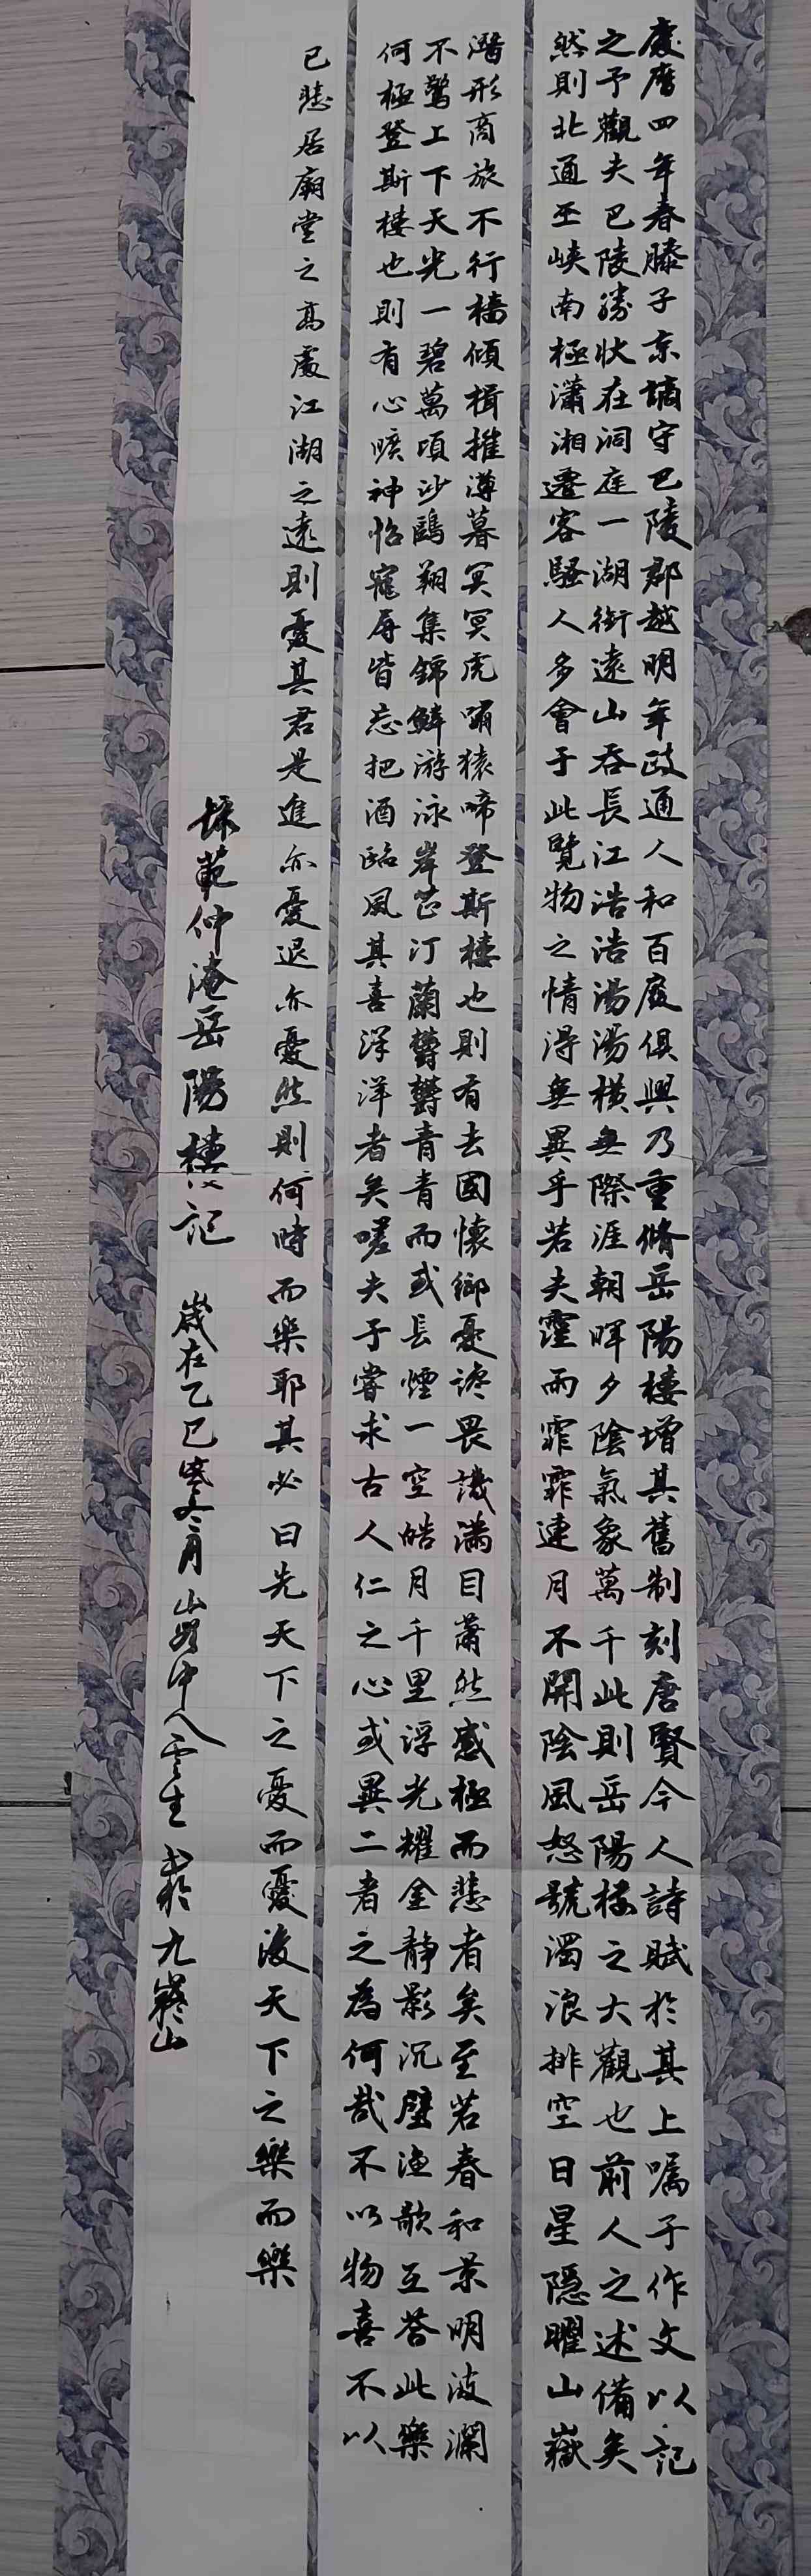 慶曆四年春滕子京謫守巴陵郡越明年政通人和百廢俱興乃重脩岳陽樓增其舊制刻唐賢今人詩賦於其上囑予作文以記
之予觀夫巴陵勝狀在洞庭一湖銜遠山吞長江浩浩湯湯橫無際涯朝暉夕陰氣象萬千此則岳陽樓之大觀也前人之述備矣
然則北通巫峽南極瀟湘遷客騷人多會于此覽物之情得無異乎若夫霪雨霏霏連月不開陰風怒號濁浪排空日星隱曜山嶽
潛形商旅不行檣傾楫摧薄暮冥冥虎嘯猿啼登斯樓也則有去國懷鄉憂讒畏譏滿目蕭然感極而悲者矣至若春和景明波瀾
不驚上下天光一碧萬頃沙鷗翔集錦鱗游泳岸芷汀蘭鬱鬱青青而或長煙一空皓月千里浮光耀金靜影沉璧漁歌互荅此樂
何極登斯樓也則有心曠神怡寵辱皆忘把酒臨風其喜洋洋者矣嗟夫予嘗求古人仁之心或異二者之為何哉不以物喜不以
己悲居廟堂之高處江湖之遠則憂其君是進亦憂退亦憂然則何時而樂耶其必曰先天下之憂而憂後天下之樂而樂
范仲淹岳陽樓記 歲在乙巳寒冬月 山 中人雲生 於九嶷山